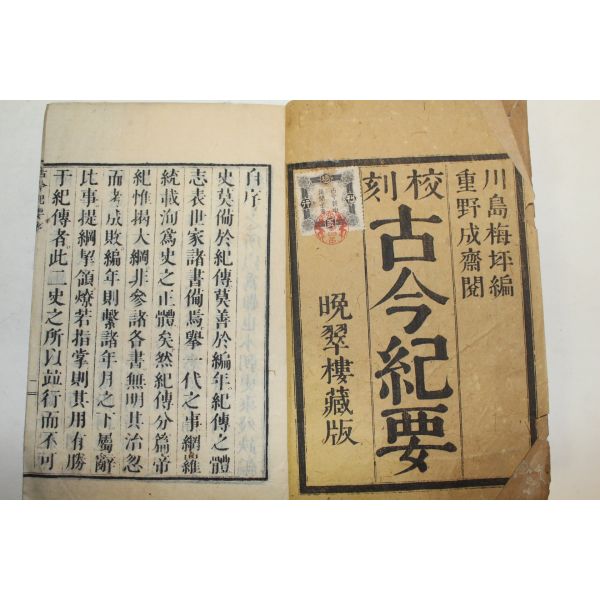 川島梅坪編
重野成齋閱
校刻
古今紀要
晚翠樓藏版
自序
史莫備於紀傳莫善於編年紀傳之體
志表世家諸書備焉擧一代之事網維
統載洵爲史之正體矣然紀傳分篇帝
紀惟揭大綱非參諸各書無明其治忽
而考成敗編年則繫諸年月之下屬辭
比事提綱挈領燎若指掌則其用有勝
于紀傳者此二史之所以竝行而不可